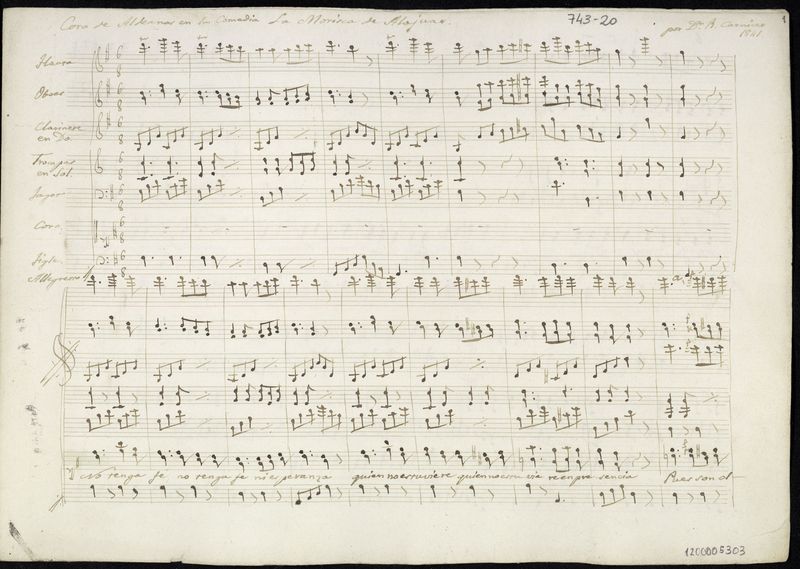 Coro de Aldeanas en la Comedia La Morisca de Alajuar.
743-20
por Dn. R. Carnicer
1841
1
Flauta
Oboes
Clarinete
en Do.
Trompas
en Sol.
Fagot
Coro
Allegretto
6 8
No tenga fe no tenga fe ni esperanza quien no estuviere quien no estu en presencia Pues son el
1200005303